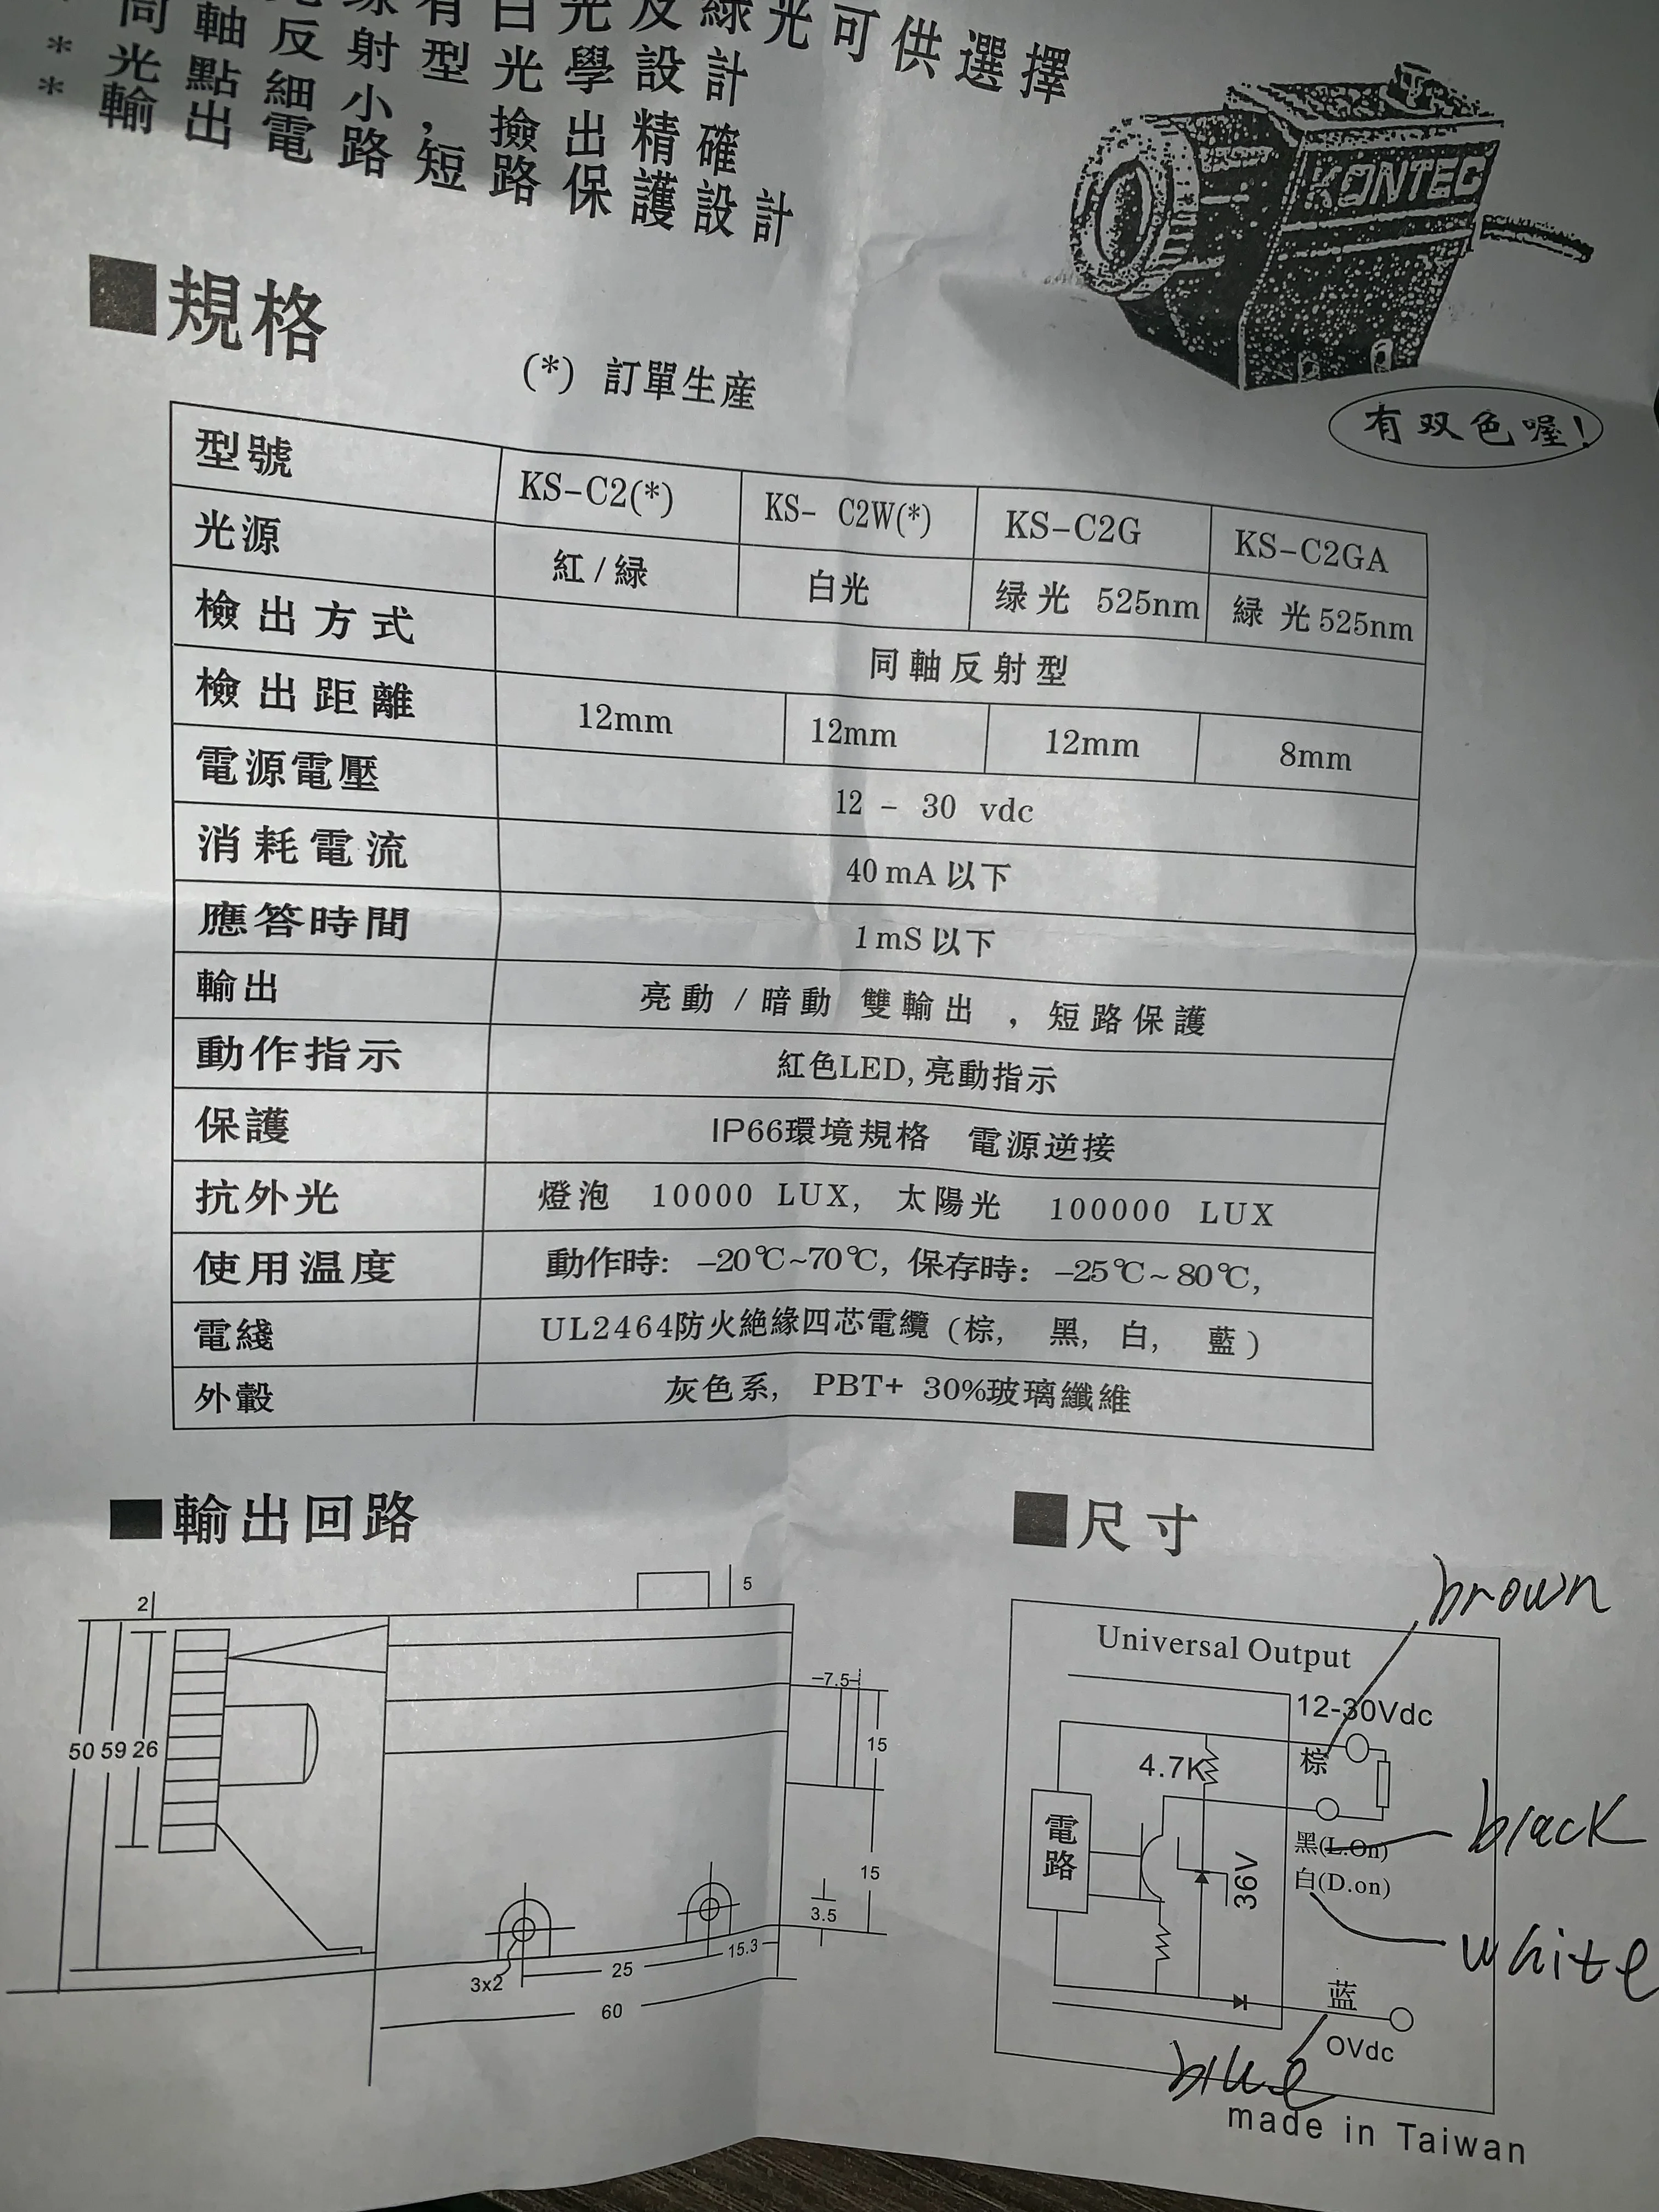 有白光及綠光可供選擇
* 同軸反射型光學設計
* 光點細小,撿出精確
* 輸出電路短路保護設計
KONTEC
有双色喔!
■規格
(*) 訂單生産
型號 KS-C2(*) KS- C2W(*) KS-C2G KS-C2GA
光源 紅/緑 白光 绿光 525nm 緑光525nm
檢出方式 同軸反射型
檢出距離 12mm 12mm 12mm 8mm
電源電壓 12 - 30 vdc
消耗電流 40mA以下
應答時間 1mS以下
輸出 亮動/暗動 雙輸出 , 短路保護
動作指示 紅色LED,亮動指示
保護 IP66環境規格 電源逆接
抗外光 燈泡 10000 LUX, 太陽光 100000 LUX
使用温度 動作時: -20℃~70℃, 保存時: -25℃~80℃,
電綫 UL2464防火絶緣四芯電纜 (棕, 黑, 白, 藍)
外轂 灰色系, PBT+ 30%玻璃纖維
■輸出回路
2
5
50 59 26
7.5
15
15
3.5
3x2
25
15.3
60
■尺寸
brown
Universal Output
12-30Vdc
棕
4.7K
電路
36V
黑(L.On)
black
白(D.on)
white
蓝
0Vdc
blue
made in Taiwan